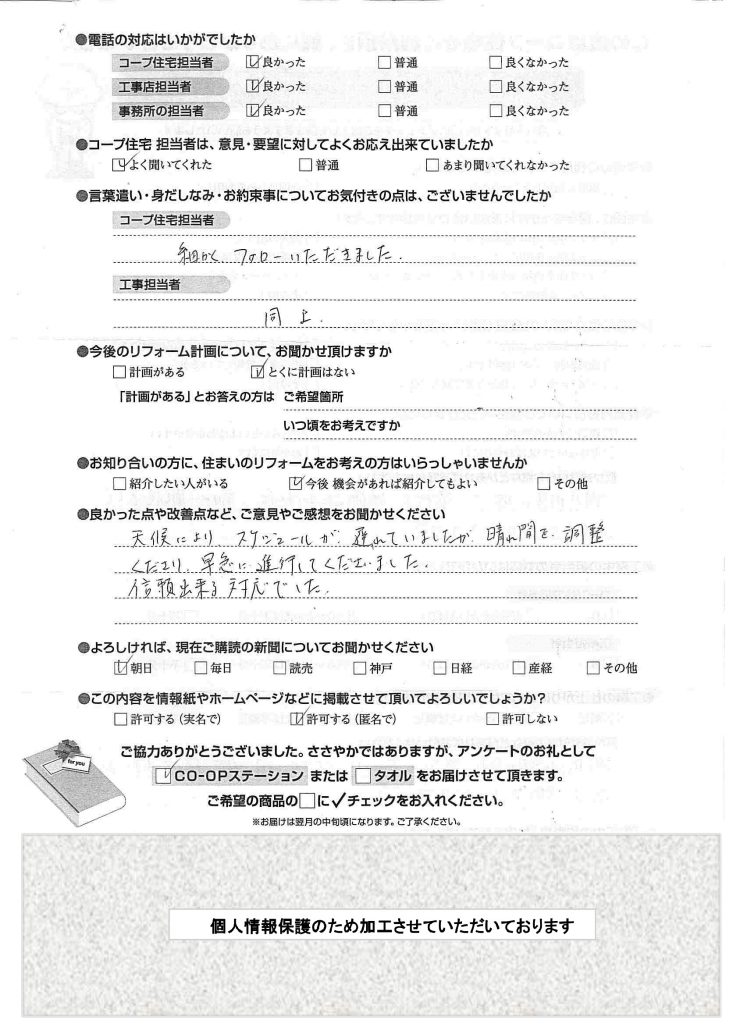 ●電話の対応はいかがでしたか
コープ住宅担当者 ☑良かった □普通 □良くなかった
工事店担当者 ☑良かった □普通 □良くなかった
事務所の担当者 ☑良かった □普通 □良くなかった
●コープ住宅 担当者は、意見・要望に対してよくお応え出来ていましたか
☑よく聞いてくれた □普通 □あまり聞いてくれなかった
●言葉遣い・身だしなみ・お約束事についてお気付きの点は、ございませんでしたか
コープ住宅担当者
細かく フォローいただきました.
工事担当者
同上.
●今後のリフォーム計画について、お聞かせ頂けますか
□計画がある ☑とくに計画はない
「計画がある」とお答えの方は ご希望箇所
いつ頃をお考えですか
●お知り合いの方に、住まいのリフォームをお考えの方はいらっしゃいませんか
□紹介したい人がいる ☑今後 機会があれば紹介してもよい □その他
●良かった点や改善点など、ご意見やご感想をお聞かせください
天候により、スケジュールが、遅れていましたが、晴れ間を、調整
くださり、早急に進行してくださいました.
信頼出来る対応でした.
●よろしければ、現在ご購読の新聞についてお聞かせください
☑朝日 □毎日 □読売 □神戸 □日経 □産経 □その他
●この内容を情報紙やホームページなどに掲載させて頂いてよろしいでしょうか?
□許可する(実名で) ☑許可する(匿名で) □許可しない
for you
ご協力ありがとうございました。ささやかではありますが、アンケートのお礼として
☑CO-OPステーション または □タオル をお届けさせて頂きます。
ご希望の商品の□に✓チェックをお入れください。
※お届けは翌月の中旬頃になります。ご了承ください。
個人情報保護のため加工させていただいております